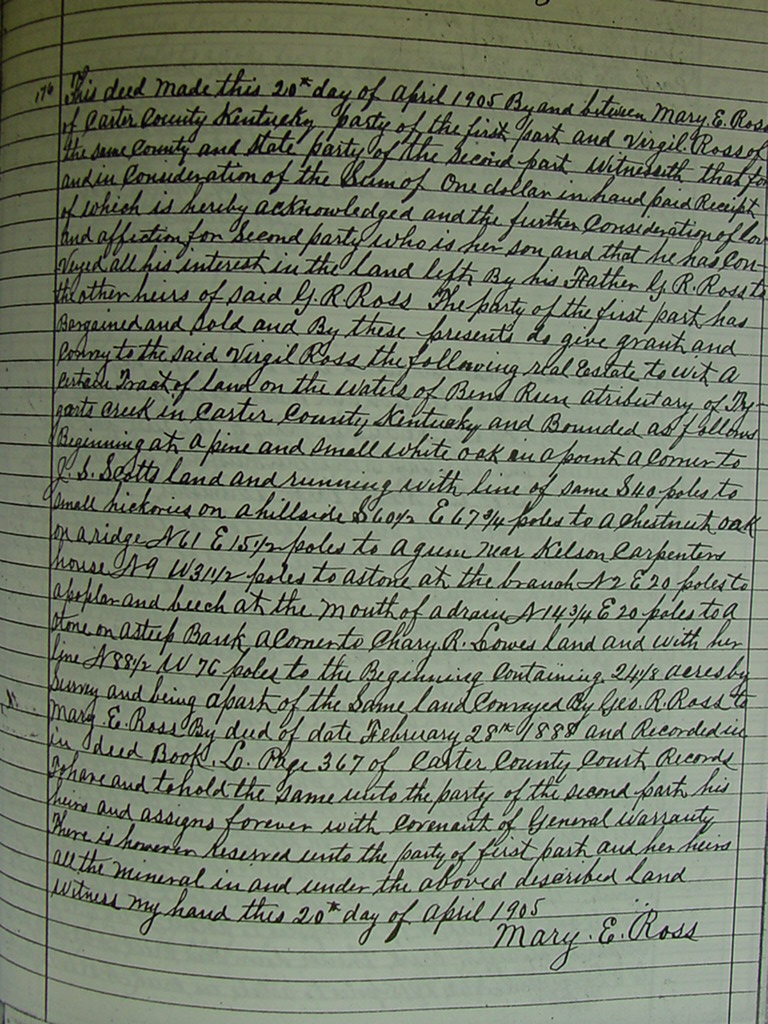 176 This deed made this 20th day of April 1905 By and between Mary E. Ross
of Carter County Kentucky party of the first part and Virgil Ross of
the same County and State party of the second part Witnesseth that for
and in Consideration of the Sum of One dollar in hand paid Receipt
of which is hereby acknowledged and the further Consideration of lov
and affection for Second party who is her son and that he has Con-
veyed all his interest in the land left By his Father G. R. Ross to
the other heirs of said G. R. Ross The party of the first part has
Bargained and Sold and By these presents do give grant and
Convey to the said Virgil Ross the following real Estate to wit A
Certain Tract of land on the Waters of Bens Run a tributary of Ty-
garts Creek in Carter County Kentucky and Bounded as follows
Beginning at a pine and small white oak in a point a Corner to
J. S. Scotts land and running with line of same S 40 poles to
small hickories on a hillside S 60 1/2 E 67 3/4 poles to a Chestnut oak
on a ridge N 61 E 15 1/2 poles to a gum near Kelson Carpenters
house N 9 W 31 1/2 poles to a stone at the branch N 2 E 20 poles to
a poplar and beech at the mouth of a drain N 14 3/4 E 20 poles to a
stone on a steep Bank, a Corner to Chary. R. Lowes land and with her
line N 88 1/2 W 76 poles to the Beginning Containing 24 1/8 acres by
Survey and being a part of the Same land Conveyed By Geo. R. Ross to
Mary E. Ross By deed of date February 28th 1888 and Recorded in
in deed Book. L. Page 367 of Carter County Court Records
To have and to hold the same unto the party of the second part his
heirs and assigns forever with Covenant of General Warranty
There is however reserved unto the party of first part and her heirs
all the mineral in and under the aboved described land
Witness my hand this 20th day of April 1905
Mary. E. Ross